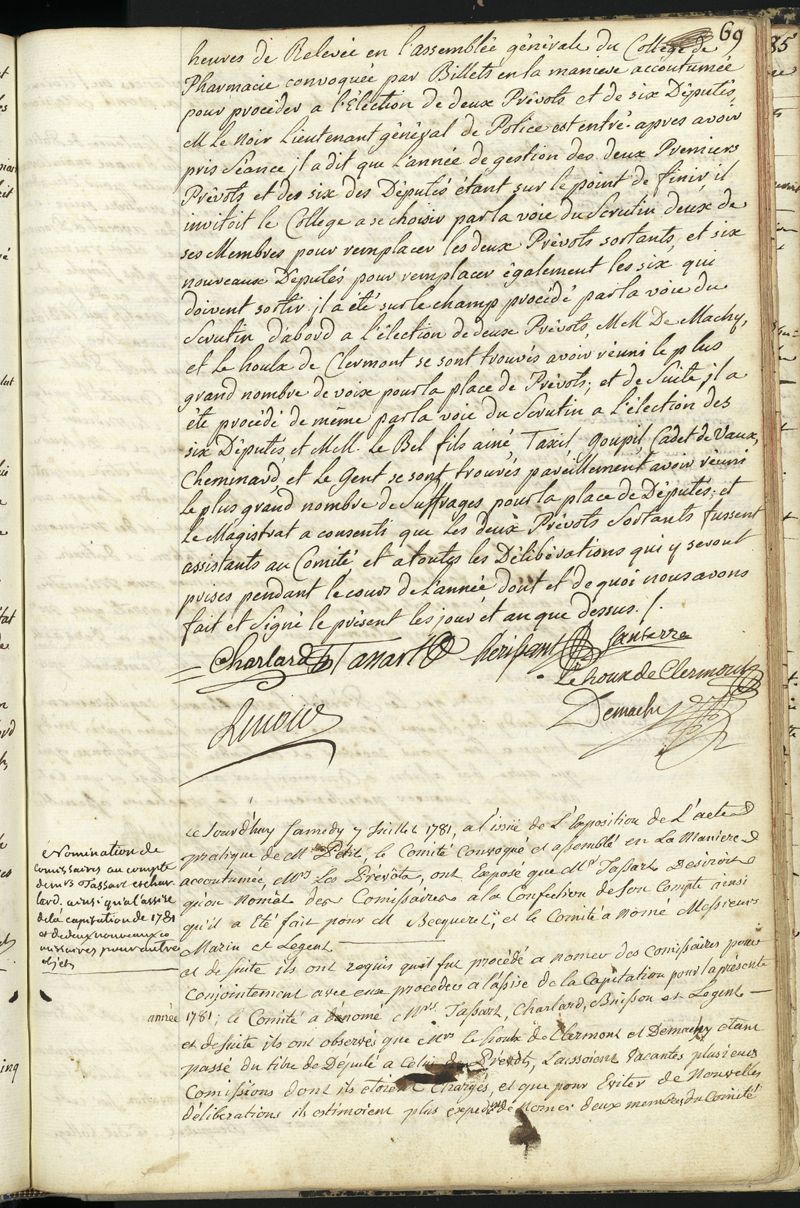 69
heures de Relevée en l'assemblée générale du College de
Pharmacie convoquée par Billets en la maniere accoutumée
pour procéder a l'Election de deux Prévots et de six Députés,
M. Le Noir Lieutenant général de Police est entré. apres avoir
pris Séance, il a dit que l'année de gestion des deux Premiers
Prévots et des six des Députés étant sur le point de finir, il
invitoit le College a se choisir par la voie du Scrutin deux de
ses Membres pour remplacer les deux Prévots sortants, et six
nouveaux Députés pour remplacer également les six qui
doivent sortir; il a été sur le champ procédé par la voie du
Scrutin d'abord a l'élection de deux Prévots, MM. De Machy,
et Le houlx de Clermont se sont trouvés avoir réuni le plus
grand nombre de voix pour la place de Prévots; et de Suite, il a
été procédé de même par la voie du Scrutin a l'élection des
six Députés, et MM. Le Bel fils ainé Taxil, Goupil, Cadet de Vaux,
Cheminard, et Le Gent se sont trouvés pareillement avoir réuni
le plus grand nombre de Suffrages pour la place de Députés; et
Le Magistrat a consenti que les deux Prévots Sortants fussent
assistants au Comité, et a toutes les Délibérations qui y seront
prises pendant le cours de l'année dont et de quoi nous avons
fait et signé le présent les jour et an que dessus. /.
Charlard Tassart hérissant Santerre
Le houx de Clermont
Lenoir
Demachy
Ce Jourdhuy Samedy 7 Juillet 1781, a l'issüe de L'Exposition de L'acte
pratique de Mr Petit, le Comité Convoqué et assemblé en La Maniere
accoutumée, Mrs Les Prevôts, ont Exposé que Mr Tassart Desiroit
qu'on Nomat des Comissaires a la Confection de Son Compte ainsi
qu'il a Eté fait pour M Becqueret, et le Comité a Nomé Messieurs
Marin et Legent
et de suite ils ont requis qu'il fut procédé a nomer des Comissaires pour
Conjointement avec eux proceder a l'assise de la Capitation pour la présente
année
1781; le Comité a nomé Mrs Tassart, Charlard, Buisson et Legent
et de suite ils ont observés que Mrs le houx de Clermont et Demachy etant
passé du titre de Député a Celui de Prévôt, Laissoient Vacantes plusieurs
Comissions dont ils étoient Chargés, et que pour Eviter de Nouvelles
délibérations ils estimoient plus expedient de Nomer deux membres du Comité
Nomination de
comissaires au compte
de mrs Tassart et char
lard. ainsi qu'a l'assise
de la capitation de 1781
et de deux nouveaux co
missaires pour autre
objets